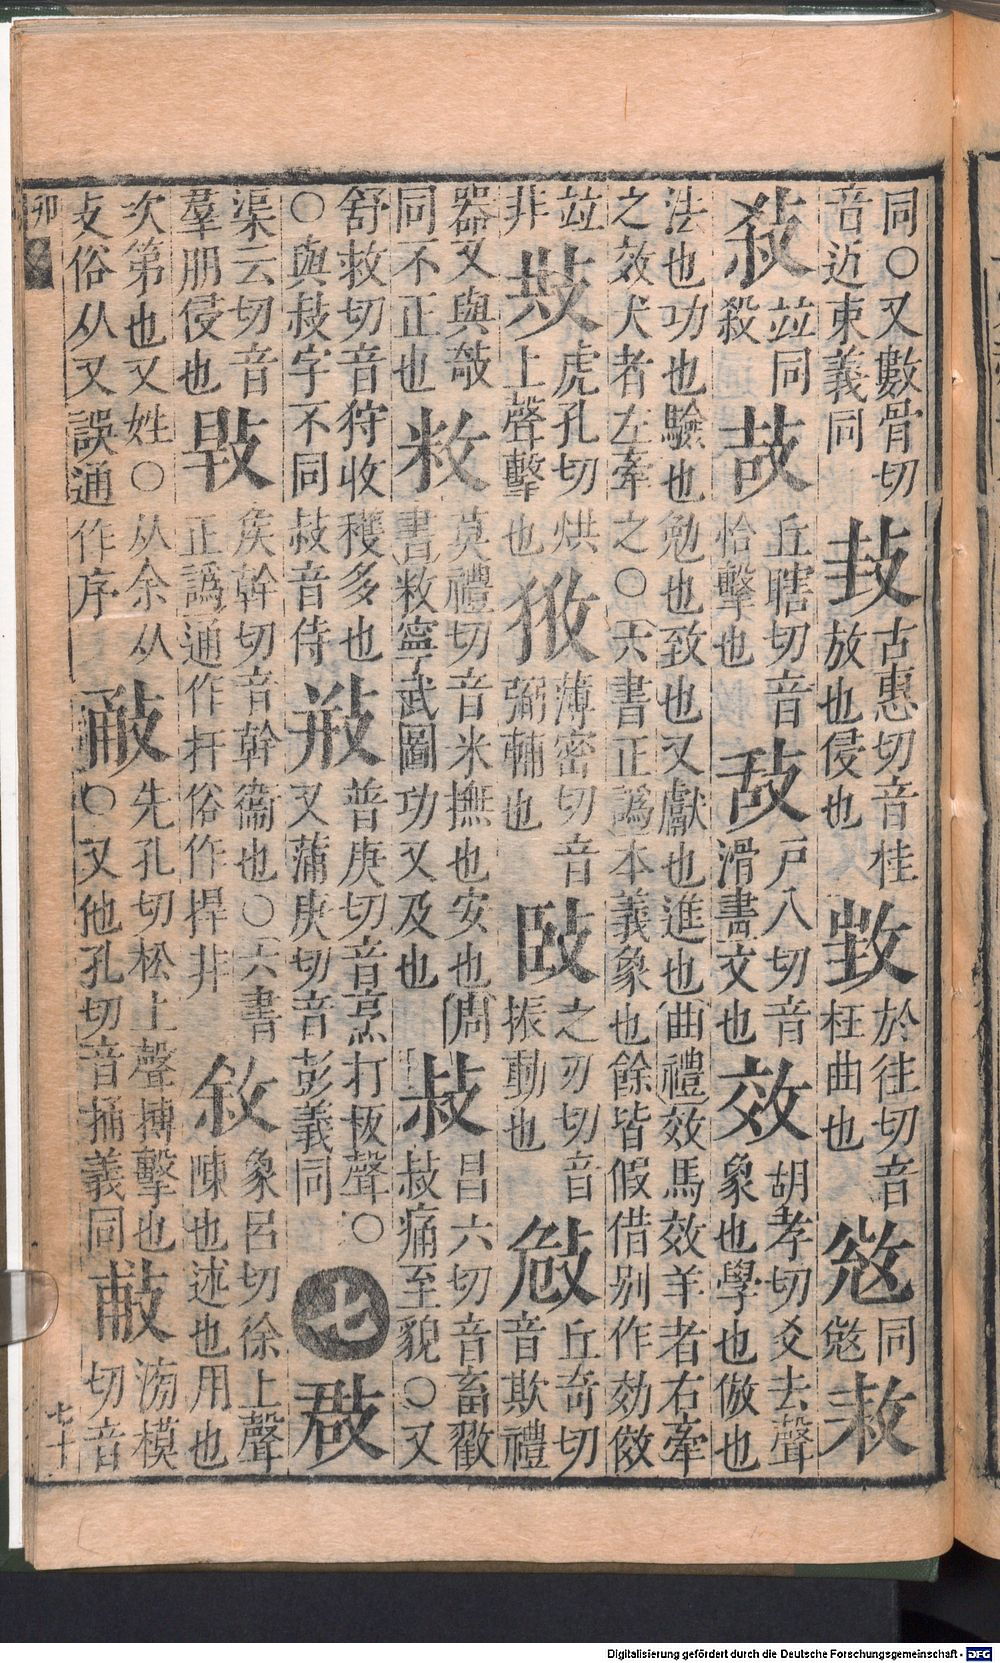 同○又數骨切
音近束義同
古惠切音桂
放也侵也
於往切音
枉曲也
同
竝同
殺
丘瞎切音
恰擊也
敌
戶八切音
滑盡文也
效
胡孝切爻去聲
象也學也倣也
法也功也驗也勉也致也又獻也進也曲禮效馬效羊者右牽
之效犬者左牽之○六書正譌本義象也餘皆假借別作効俲
竝
非
虎孔切烘
上聲擊也
薄密切音
弼輔也
之刃切音
振動也
丘奇切
音欺禮
器又與攲
同不正也
敉
莫禮切音米撫也安也周
書敉寧武圖功又及也
敊
昌六切音畜歡
敊痛至貌○又
舒救切音狩收穫多也
○與敊字不同敊音侍
普庚切音烹打板聲○
又蒲庚切音彭義同
七
㪊
渠云切音
羣朋侵也
㪋
矦幹切音幹衞也○六書
正譌通作扞俗作捍非
敘
象呂切徐上聲
陳也述也用也
次第也又姓○从余从
攴俗从又誤通作序
先孔切松上聲搏擊也
○又他孔切音捅義同
滂模
切音
卯
七十
Digitalisierung gefördert durch die Deutsche Forschungsgemeinschaft - DFG